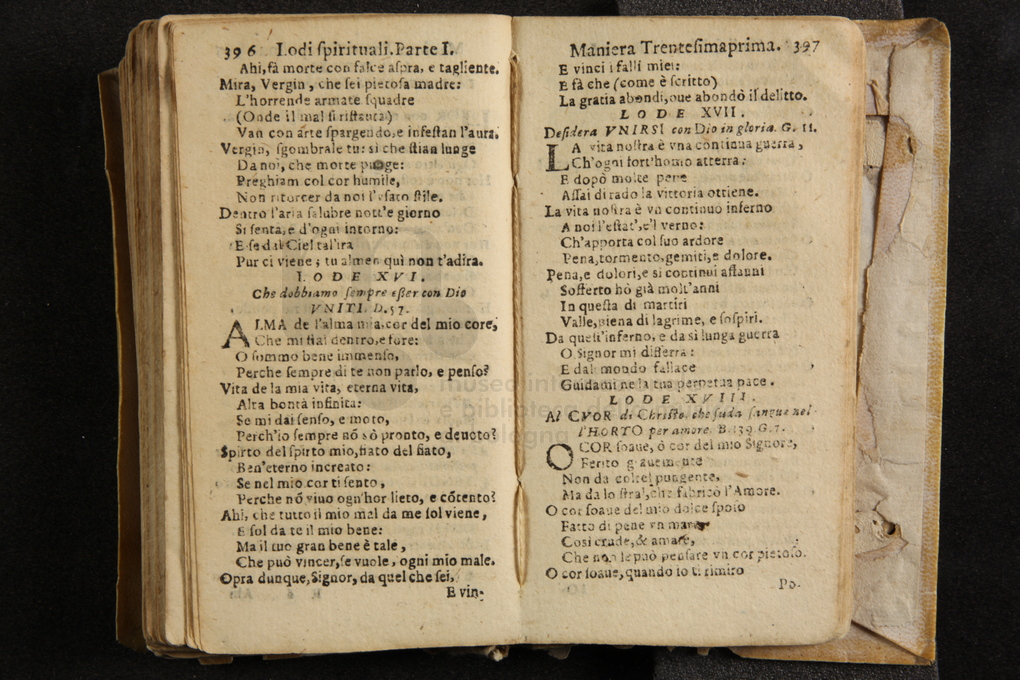 396 Lodi ſpirituali. Parte I.
Ahi, fà morte con falce aſpra, e tagliente.
Mira, Vergin, che ſei pietoſa madre:
L'horrende armate ſquadre
(Onde il mal ſi riſtaura)
Van con arte ſpargendo, e infeſtan l'aura.
Vergin, ſgombrale tu: si che ſtian lunge
Da noi, che morte punge:
Preghiam col cor humile,
Non ritorcer da noi l'vſato ſtile.
Dentro l'aria ſalubre nott'e giorno
Si ſenta, e d'ogni intorno:
E ſe d il Ciel tal'ira
Pur ci viene; tu almen quì non t'adira.
LODE XVI.
Che dobbiamo ſempre eſſer con Dio
VNITI. D. 57.
ALMA de l'alma mia, cor del mio core,
Che mi ſtai dentro, e fore:
O ſommo bene immenſo,
Perche ſempre di te non parlo, e penſo?
Vita de la mia vita, eterna vita,
Alta bontà infinita:
Se mi dai ſenſo, e moto,
Perch'io ſempre nõ sò pronto, e deuoto?
Spirto del ſpirto mio, fiato del fiato,
Ben'eterno increato:
Se nel mio cor ti ſento,
Perche nõ viuo ogn'hor lieto, e cõtento?
Ahi, che tutto il mio mal da me ſol viene,
E ſol da te il mio bene:
Ma il tuo gran bene è tale,
Che può vincer, ſe vuole, ogni mio male.
Opra dunque, Signor, da quel che ſei,
E vin-
Maniera Trenteſimaprima. 397
E vinci i falli miei:
E fà che (come è ſcritto)
La gratia abondi, oue abondò il delitto.
LODE XVII.
Deſidera VNIRSI con Dio in gloria. G. 11.
LA vita noſtra è vna continua guerra,
Ch'ogni fort'homo atterra:
E dopò molte pene
Aſſai di rado la vittoria ottiene.
La vita noſtra è vn continuo inferno
A noi l'eſtat', e'l verno:
Ch'apporta col ſuo ardore
Pena, tormento, gemiti, e dolore.
Pena, e dolori, e si continui affanni
Sofferto hò già molt'anni
In queſta di martiri
Valle, piena di lagrime, e ſoſpiri.
Da queſt'inferno, e da si lunga guerra
O Signor mi diſſerra:
E dal mondo fallace
Guidami ne la tua perpetua pace.
LODE XVIII.
Al CVOR di Chriſto, che ſuda ſangue nel
l'HORTO per amore. B. 139. G. 7.
O COR ſoaue, ò cor del mio Signore,
Ferito grauemente
Non da coltel pungente,
Ma da lo ſtral, che fabricò l'Amore.
O cor ſoaue del mio dolce ſpoſo
Fatto di pene vn mare
Cosi crude, & amare,
Che non le può penſare vn cor pietoſo.
O cor ſoaue, quando io ti rimiro
Po-